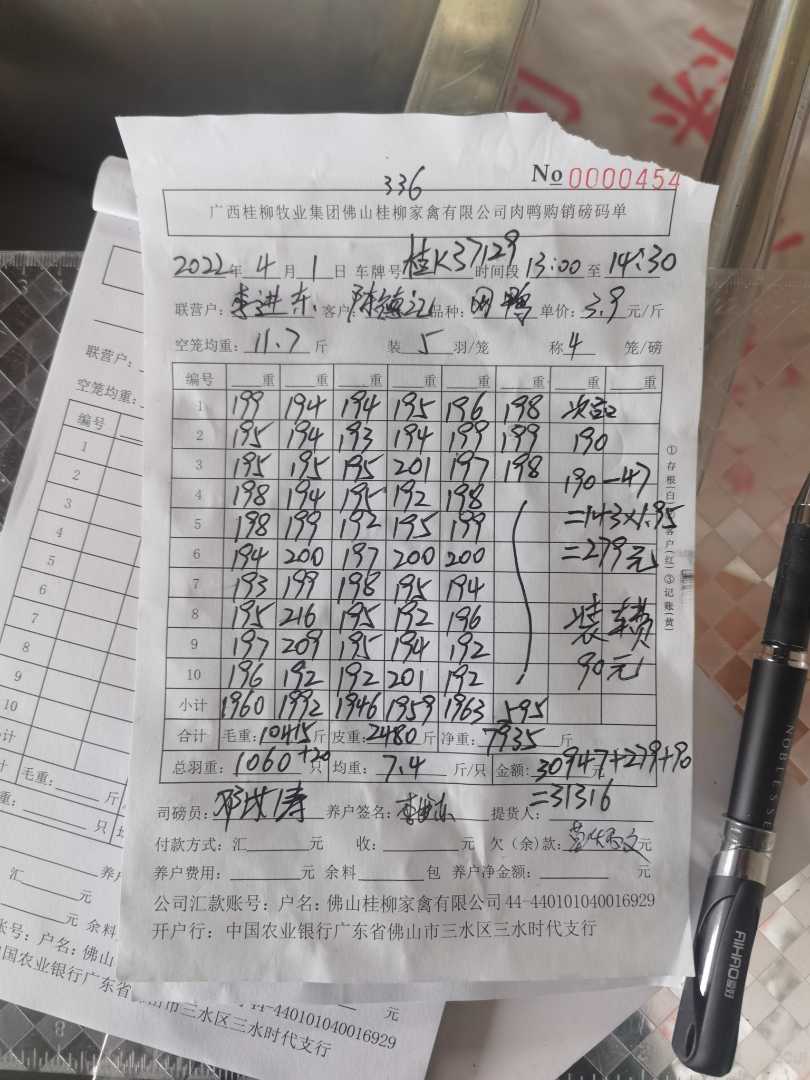 336
No 0000454
广西桂柳牧业集团佛山桂柳家禽有限公司肉鸭购销磅码单
2022年 4月 1日 车牌号 桂K37129 时间段 13:00 至 14:30
联营户: 李进东 客户: 陈镇江 品种: 肉鸭 单价: 3.9 元/斤
空笼均重: 11.7 斤 装 5 羽/笼 称 4 笼/磅
编号 重 重 重 重 重 重 重 重
1 199 194 194 195 196 198 次品
2 195 194 193 194 199 199 190
3 195 195 195 201 197 198 190-47
4 198 194 195 192 198
5 198 199 192 195 199 =143×1.95
6 194 200 197 200 200 =279元
7 193 199 198 195 194
8 195 216 195 192 196 装车费
9 197 209 195 194 192
10 196 192 192 201 192 90元
小计 1960 1992 1946 1959 1963 595
合计 毛重: 10415 斤 皮重: 2480 斤 净重: 7935 斤
总羽重: 1060+20 只 均重: 7.4 斤/只 金额: 30947+279+90
=31316
司磅员: 养户签名: 李进东 提货人:
付款方式: 汇 元 收: 元 欠(余)款: 元
养户费用: 元 余料 包 养户净金额: 元
公司汇款账号: 户名: 佛山桂柳家禽有限公司44-440101040016929
开户行: 中国农业银行广东省佛山市三水区三水时代支行
①存根(白) 客户(红)③记账(黄)
联营户:
空笼均重:
编号
1
2
3
4
5
6
7
8
9
10
毛重: 斤
只
养户
汇 元
元 余料
户名: 佛山
44-440101040016929
国农业银行广东省佛山市三水区三水时代支行
元
NOBLENESSE
AIHAO爱好